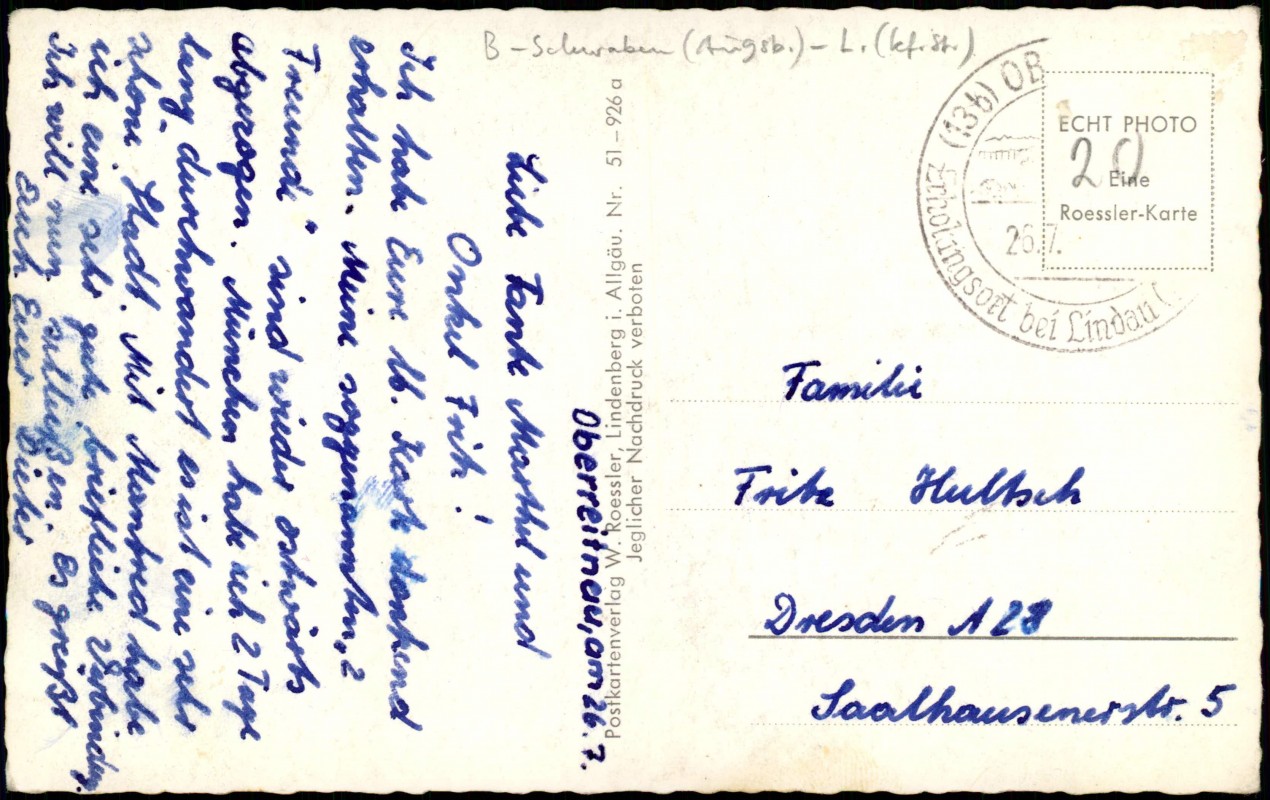 B - Schwaben (Augsb.) - L. (kfr. St.)
Oberreitnau, am 26. 7.
Liebe Tante Marthl und
Onkel Fritz!
Ich habe Eure lb. Karte dankend
erhalten. Meine sogenannten „2
Freunde" sind wieder ostwärts
abgezogen. München habe ich 2 Tage
lang durchwandert es ist eine sehr
schöne Stadt. Mit Manfred habe
ich eine sehr gute briefliche Verbindg.
Ich will nun schließen. Es grüßt
Euch Euer Dieter
Postkartenverlag W. Roessler, Lindenberg i. Allgäu. Nr. 51–926a
Jeglicher Nachdruck verboten
(13b) OB
Erholungsort bei Lindau (
26.7.
ECHT PHOTO
20
Eine
Roessler-Karte
Familie
Fritz Hultsch
Dresden A 28
Saalhausenerstr. 5